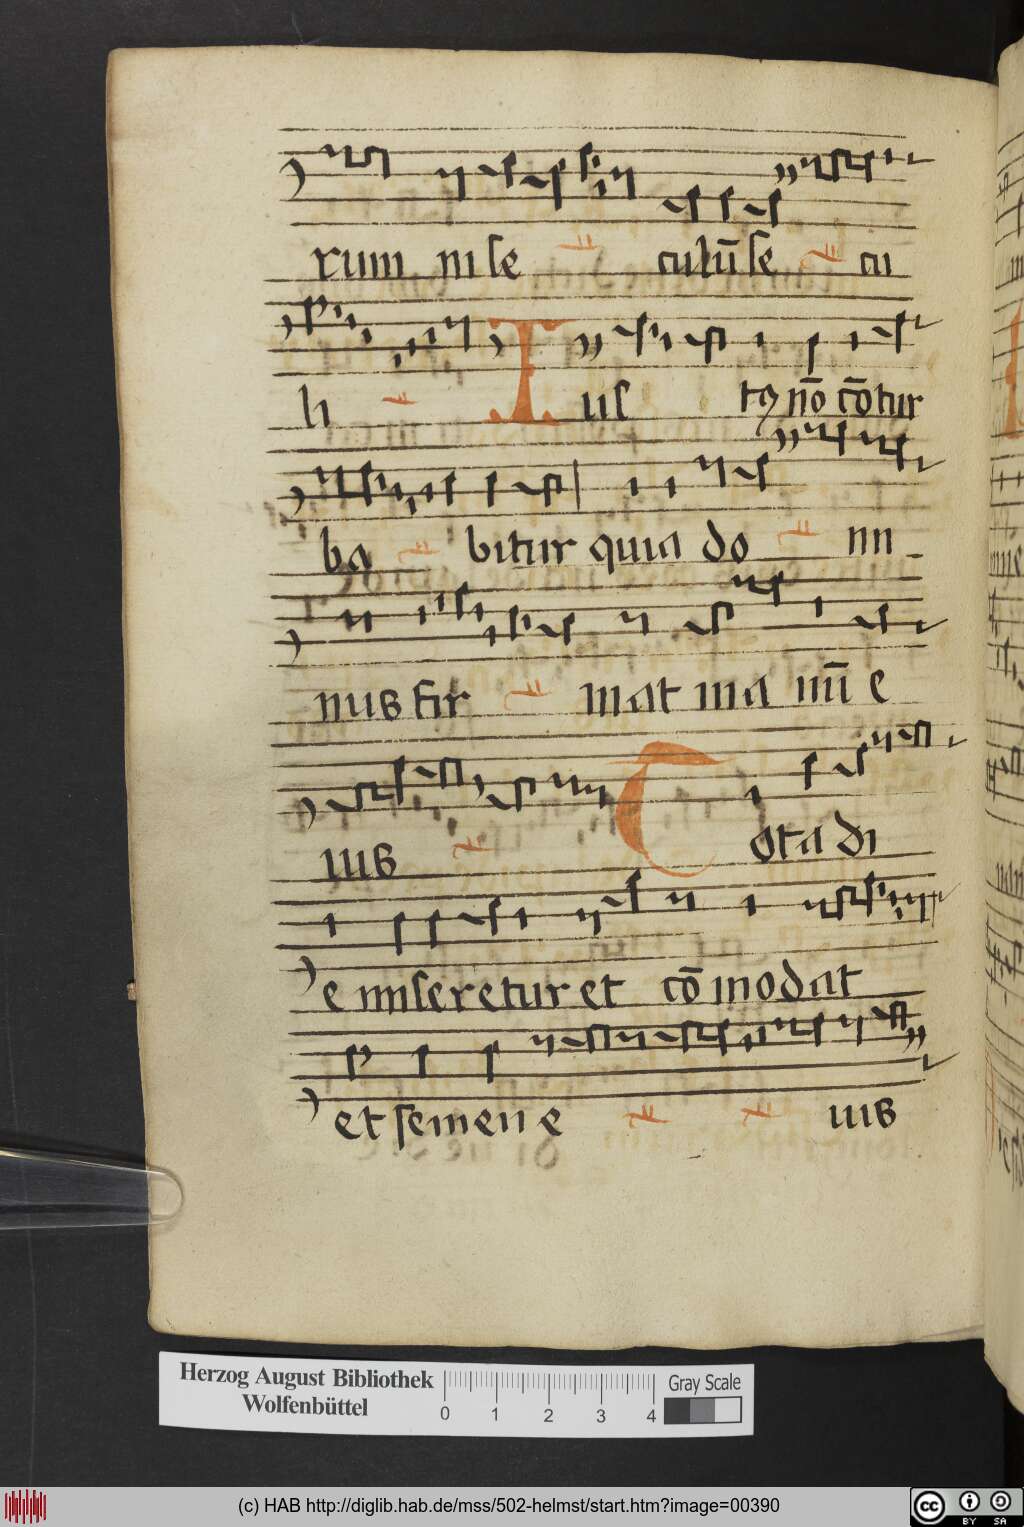 rum in se culū se cu
li Ius tꝰ nō cōtur
ba bitur quia do mi
nus fir mat ma nū e
ius Tota di
e miseretur et cōmodat
et semen e ius
Herzog August Bibliothek
Wolfenbüttel
0 1 2 3 4
Gray Scale
(c) HAB http://diglib.hab.de/mss/502-helmst/start.htm?image=00390
cc BY SA